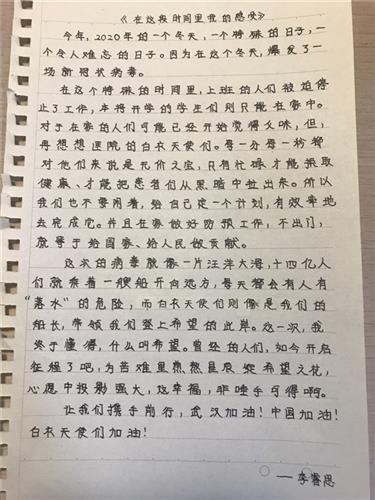 《在这段时间里我的感受》
今年，2020年的一个冬天，一个特殊的日子，一
个令人难忘的日子。因为在这个冬天，爆发了一
场新冠状病毒。
在这个特殊的时间里，上班的人们被迫停
止了工作，本将开学的学生们则只能在家中。
对于在家的人们可能已经开始觉得乏味，但，
再想想医院的白衣天使们。每一分每一秒都
对他们来说是无价之宝，只有忙碌才能换取
健康、才能把患者们从黑暗中拉出来。所以
我们也不要闲着，给自己定一个计划，有效率地
去完成它。并且在家做好防预工作，不出门，
就等于给国家、给人民做贡献。
这次的病毒就像一片汪洋大海，十四亿人
们就乘着一艘船开向远方，每天都会有人有
“落水”的危险，而白衣天使们则像是我们的
船长，带领我们登上希望的此岸。这一次，我
终于懂得，什么叫希望。曾经的人们，如今开启
征程了吧，为苦难里熬然星辰绽希望之花，
心愿中投影强大，这幸福，非唾手可得啊。
让我们携手前行，武汉加油！中国加油！
白衣天使们加油！
——李睿思